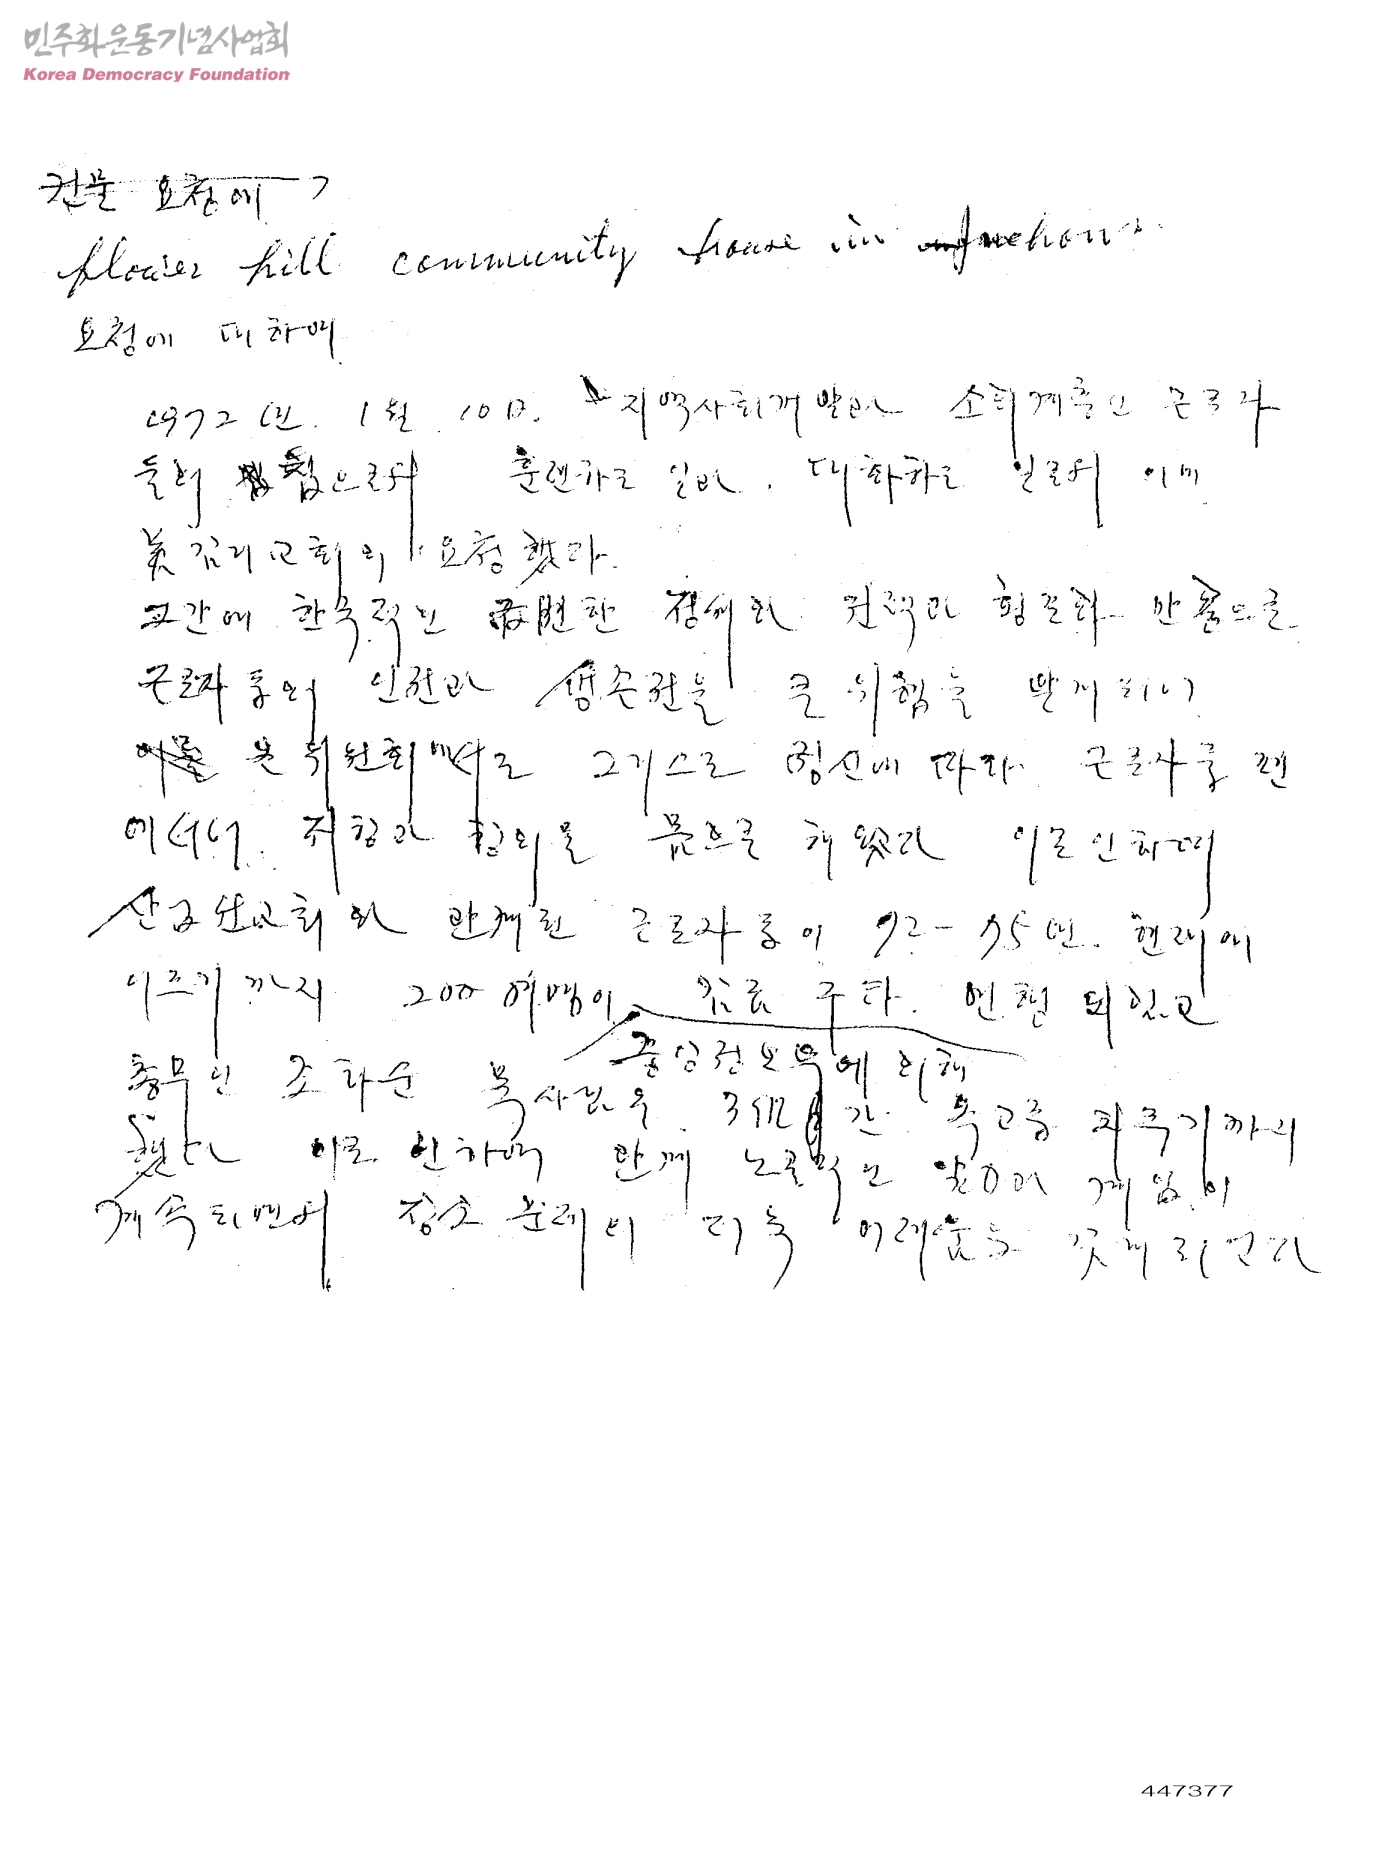 민주화운동기념사업회
Korea Democracy Foundation
건물 요청에
flower hill community house in Inchon
요청에 대하여
1972년. 1월. 10日. 지역사회개발과 소외계층인 근로자
들의 훈련하고 일과. 대화하고 이미
美감리교회의 요청했다.
그간에 한국적인 한 권력과 만
근로자들의 인권과 생존권을 큰 위협을 받게 되니
본 위원회에서도 그리스도 정신에 따라 근로자들 편
에 서서 저항과 항의를 해왔다 이로 인하여
산업선교회와 관계된 근로자들이 72-75년. 현재에
이르기까지 200여명이 감금 구타.
중앙정보부에 의해
총무인 조화순 목사님은 3個月간 옥고를 치루기까지
했으나 이로 인하여 관계 노골적인 압력과 개입이
계속되면서 장소 문제의 더욱 어려움을
447377